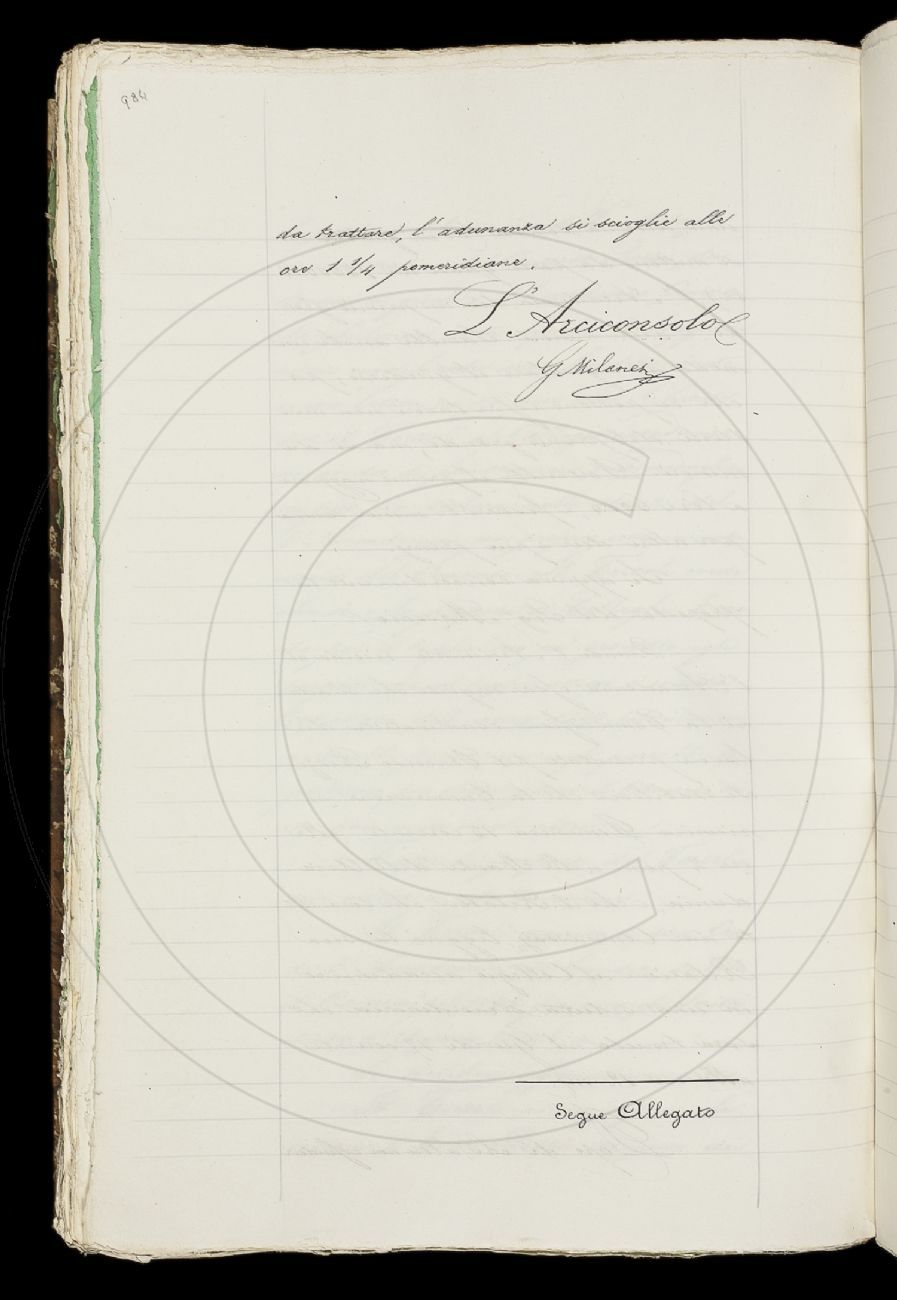 984
da trattare, l'adunanza si scioglie alle
ore 1 1/4 pomeridiane.
L'Arciconsolo
G Milanesi
Segue Allegato